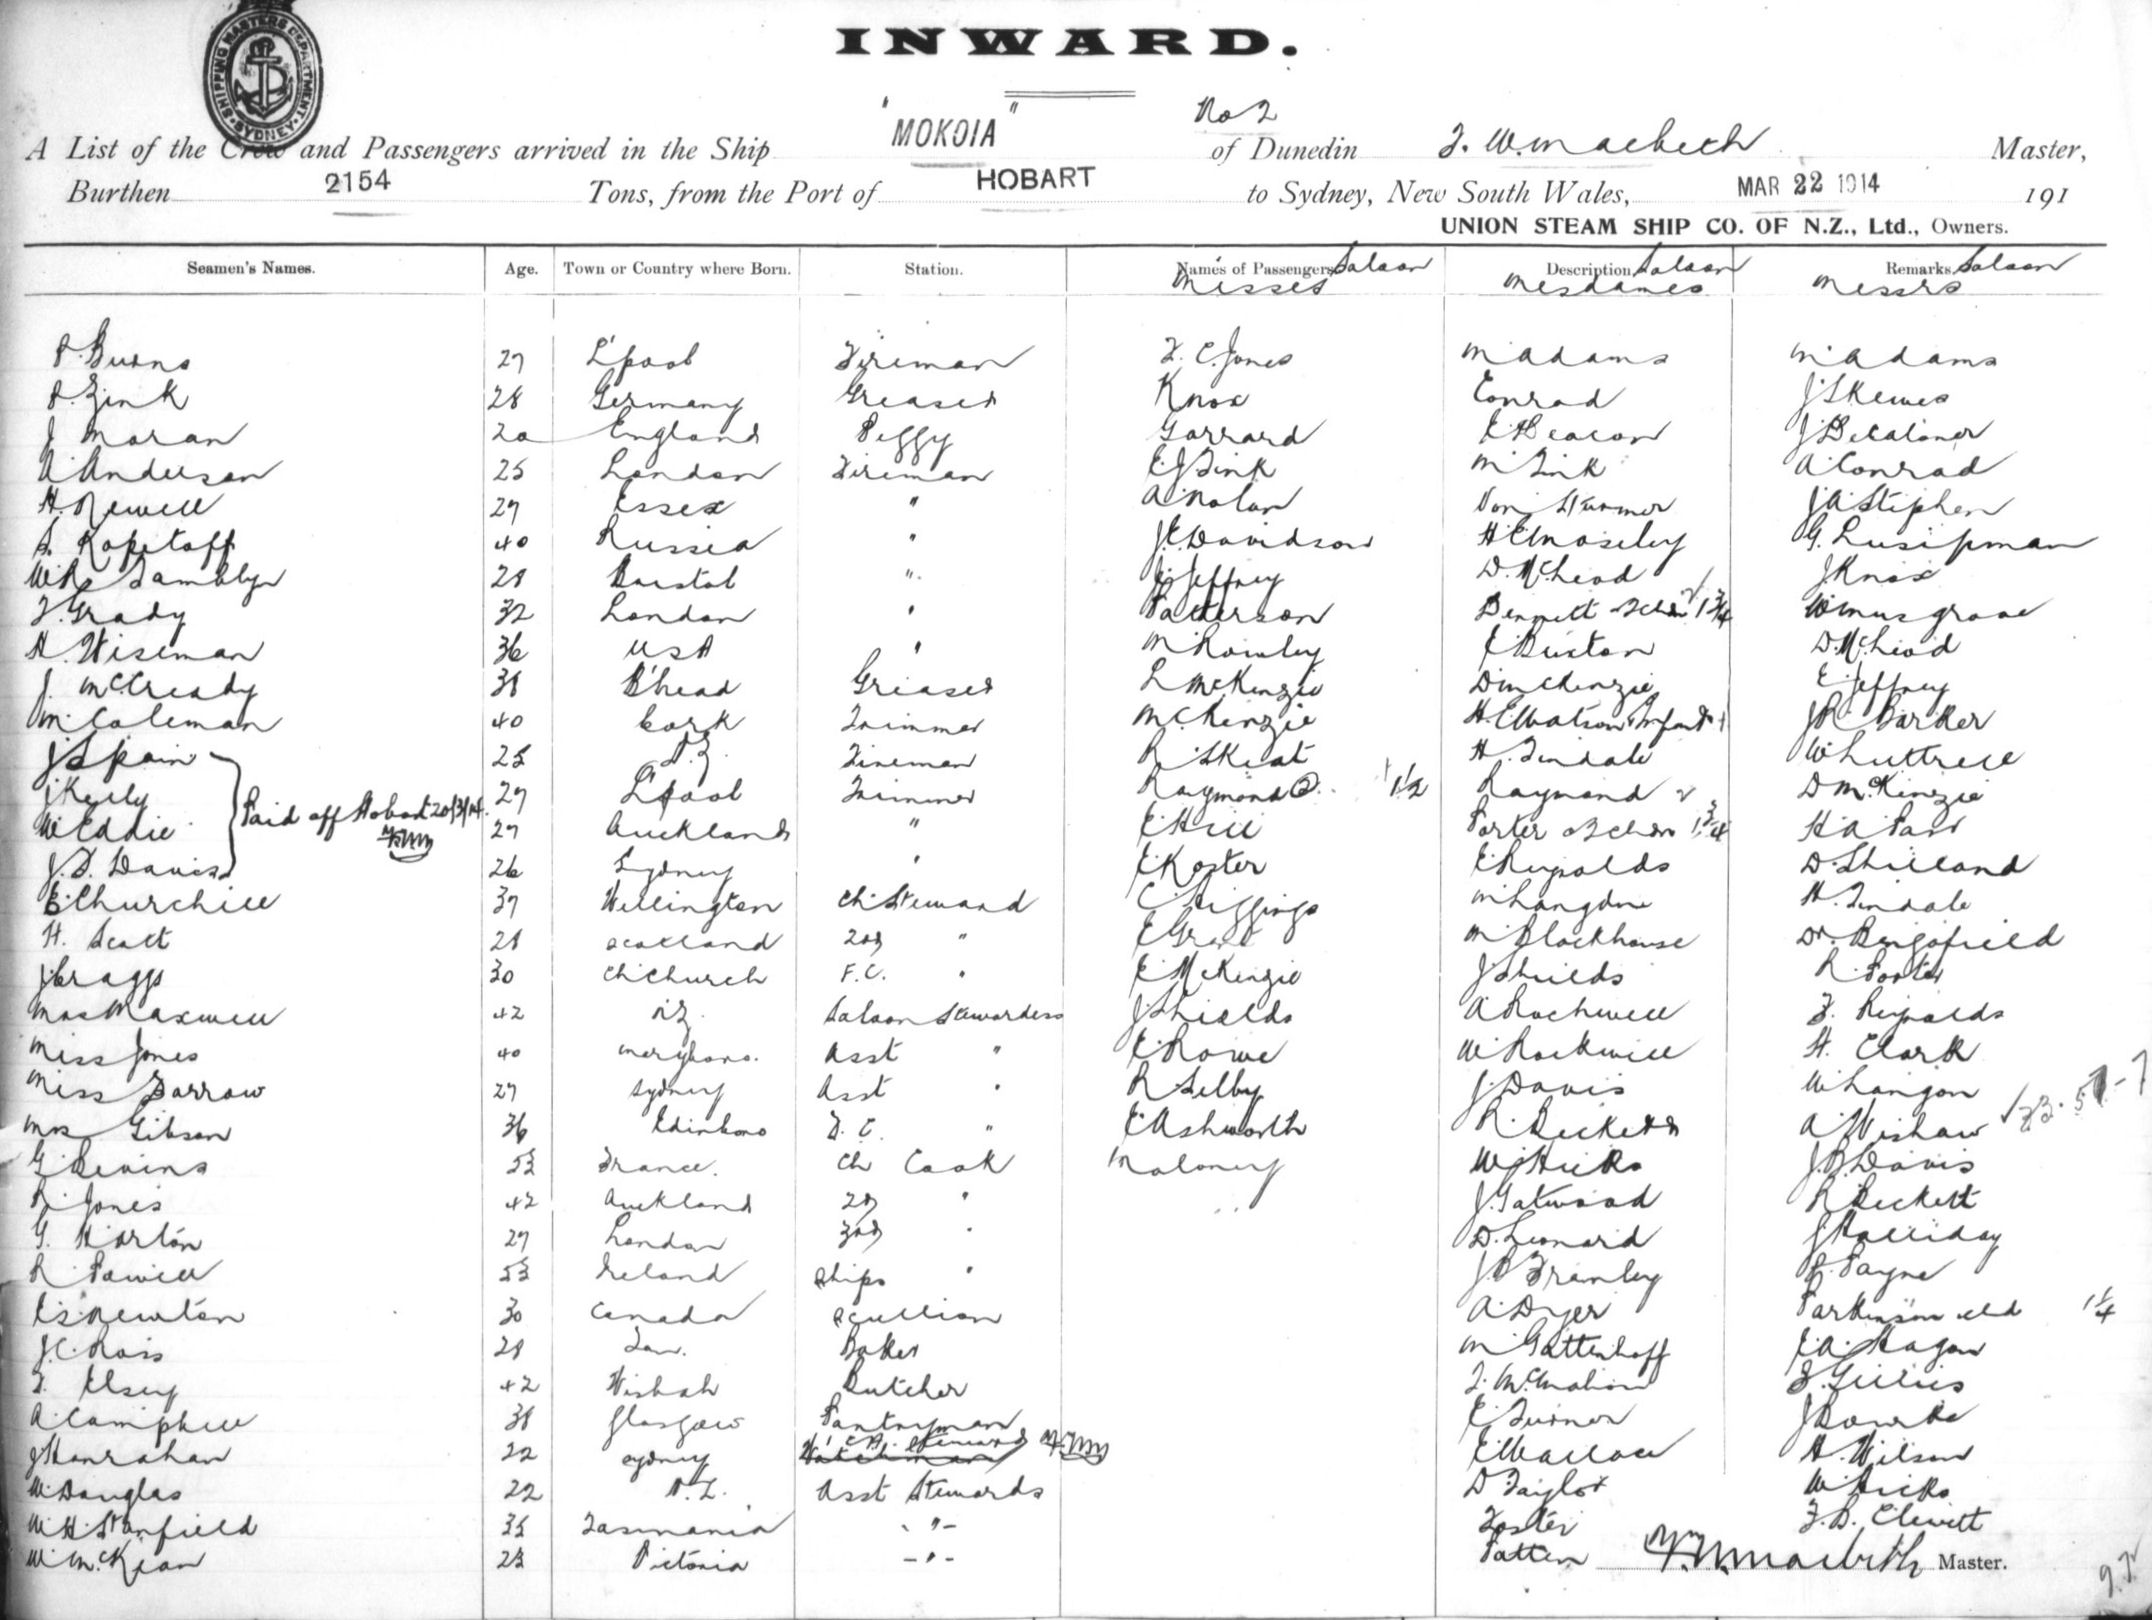 SHIPPING MASTERS DEPARTMENT. SYDNEY
INWARD.
No 2
A List of the Crew and Passengers arrived in the Ship "MOKOIA" of Dunedin F. W. Macbeth Master,
Burthen 2154 Tons, from the Port of HOBART to Sydney, New South Wales, MAR 22 1914 191
UNION STEAM SHIP CO. OF N.Z., Ltd., Owners.
Seamen's Names. Age. Town or Country where Born. Station. Names of Passengers Saloon Description Saloon Remarks Saloon
Misses Mesdames Messrs
P. Burns 27 L'pool Fireman F. C. Jones M Adams M Adams
P. Zink 28 Germany Greaser Knox Conrad J Skewes
J Moran 20 England Peggy Garrard E Deacon
A Anderson 25 London Fireman E J Fink M Fink A Conrad
H. Newell 27 Essex " A Nolan J A Stephen
S. Kopitoff 40 Russia " J. E. Davidson H E Moseley G.
W. R. Tamblyn 28 Bristol " E Jeffrey D. McLeod J Knox
F. Grady 32 London " Patterson Bennett 1 3/4 W Musgrove
A. Wiseman 36 USA " M Rowley E Buxton D. McLeod
J. McCready 38 B'head Greaser L McKenzie D McKenzie E Jeffrey
M. Coleman 40 Cork Trimmer McKenzie H. E Watson & Infant J R Barker
J Spain 25 N.Z. Fireman R Skeat H. Tindale W Luttrell
J Kelly 27 L'pool Trimmer Raymond 2 1 1/2 Raymond D McKenzie
Paid off Hobart 20/3/14.
W Eddie 27 Auckland " E Hill Porter 1 3/4 H A Parr
J. D. Davis 26 Sydney " E Koster E Reynolds D. Shilland
E. Churchill 37 Wellington Ch. Steward C Higgings M Langdon H. Tindale
H. Scott 28 Scotland 2nd " E Grant M Blackhouse Dr. Bingofield
J Craggs 30 Ch'church F. C. " E McKenzie J Shields R. Porter
Mrs Maxwell 42 NZ. Saloon Stewardess J Shields A Rockwell F. Reynolds
Miss Jones 40 Maryboro. Asst " E Rowe W Rockwell H. Clark
Miss Farrow 27 Sydney Asst " R Selby J Davis W Langon
Mrs Gibson 36 Edinboro F. C. " E Ashworth R. Beckett A Wishaw
G. Bevins 53 France. Ch Cook Maloney W J Hicks J. B. Davis
R. Jones 42 Auckland 2nd " J. Gatwood R Beckett
G. Horton 27 London 3rd " D. Leonard J Halliday
R. Powell 53 Ireland Ships " J B Framley P. Payne
E S Newton 30 Canada Scullion A. Dyer Parkinson & ch 1 1/4
J. C. Ross 28 Tas. Baker M Gottenhoff E A. Hagan
F. Elsey 42 Wisbah Butcher F. McMahon F. Gillies
A. Campbell 38 Glasgow Pantryman E Turner J Rourke
J Hanrahan 22 Sydney Steward E Wallace A. Wilson
W. Douglas 22 N.Z. Asst Stewards D Taylor W Hicks
W. H. Stanfield 35 Tasmania -"- Foster F. B. Clewitt
W McKean 23 Victoria -"- Patten
F. W. Macbeth Master.